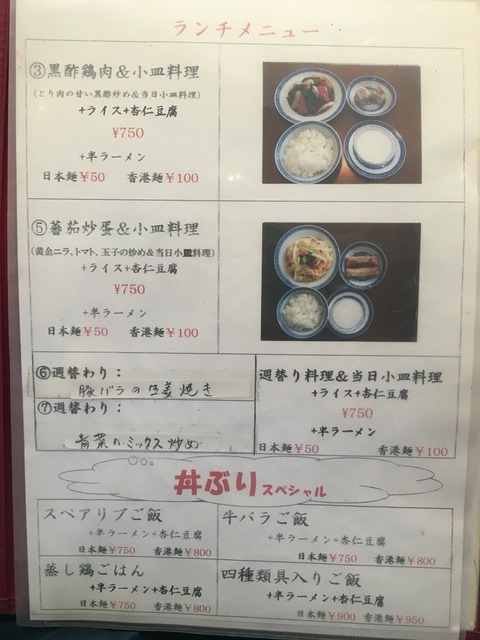 ランチメニュー
③黒酢鶏肉＆小皿料理
(とり肉の甘い黒酢炒め&当日小皿料理)
+ライス+杏仁豆腐
¥750
+半ラーメン
日本麺￥50 香港麺￥100
⑤蕃茄炒蛋＆小皿料理
(黄金ニラ、トマト、玉子の炒め&当日小皿料理)
+ライス+杏仁豆腐
¥750
+半ラーメン
日本麺￥50 香港麺￥100
⑥週替わり：
豚バラの生姜焼き
⑦週替わり：
青菜のミックス炒め
週替り料理＆当日小皿料理
+ライス+杏仁豆腐
¥750
+半ラーメン
日本麺￥50 香港麺￥100
丼ぶりスペシャル
スペアリブご飯
+半ラーメン+杏仁豆腐
日本麺￥750 香港麺￥800
牛バラご飯
+半ラーメン+杏仁豆腐
日本麺￥750 香港麺￥800
蒸し鶏ごはん
+半ラーメン+杏仁豆腐
日本麺￥750 香港麺￥800
四種類具入りご飯
+半ラーメン+杏仁豆腐
日本麺￥900 香港麺￥950